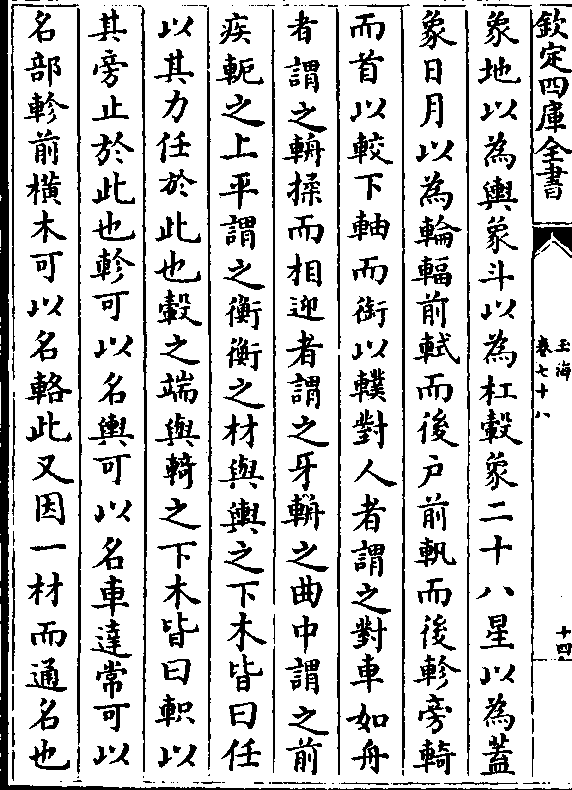 欽定四庫全書
玉海
卷七十八
十四
象地以為輿象斗以為杠轂象二十八星以為蓋
象日月以為輪輻前軾而後戶前軓而後軫旁輢
而首以較下軸而銜以轐對人者謂之對車如舟
者謂之輈揉而相迎者謂之牙輈之曲中謂之前
疾軛之上平謂之衡衡之材與輿之下木皆曰任
以其力任於此也轂之端與輢之下木皆曰軹以
其旁止於此也軫可以名輿可以名車達常可以
名部軫前橫木可以名輅此又因一材而通名也